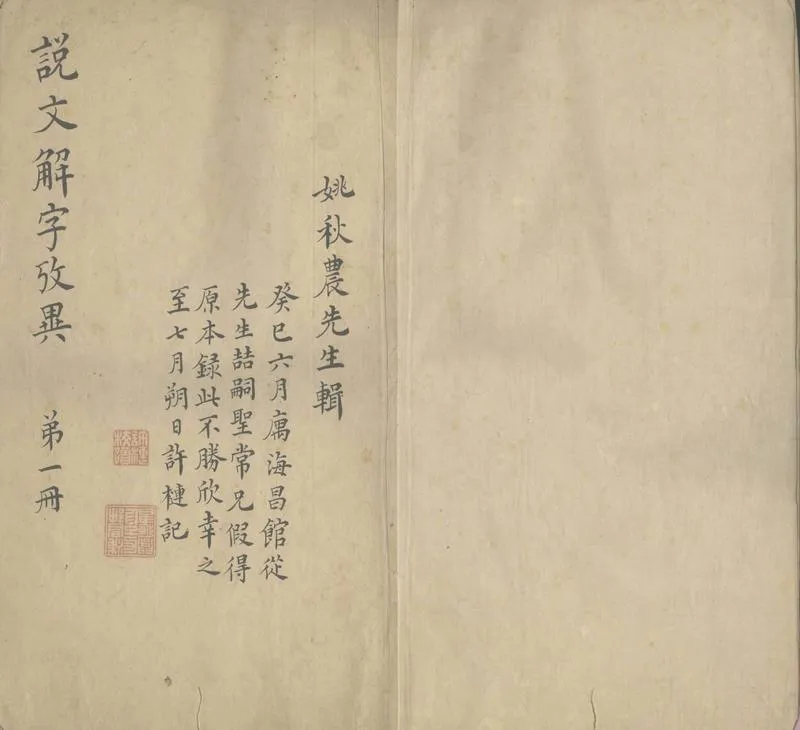 姚秋農先生輯
癸巳六月寓海昌館從
先生喆嗣聖常兄假得
原本録此不勝欣幸之
至七月朔日許槤記
説文解字攷異　弟一冊